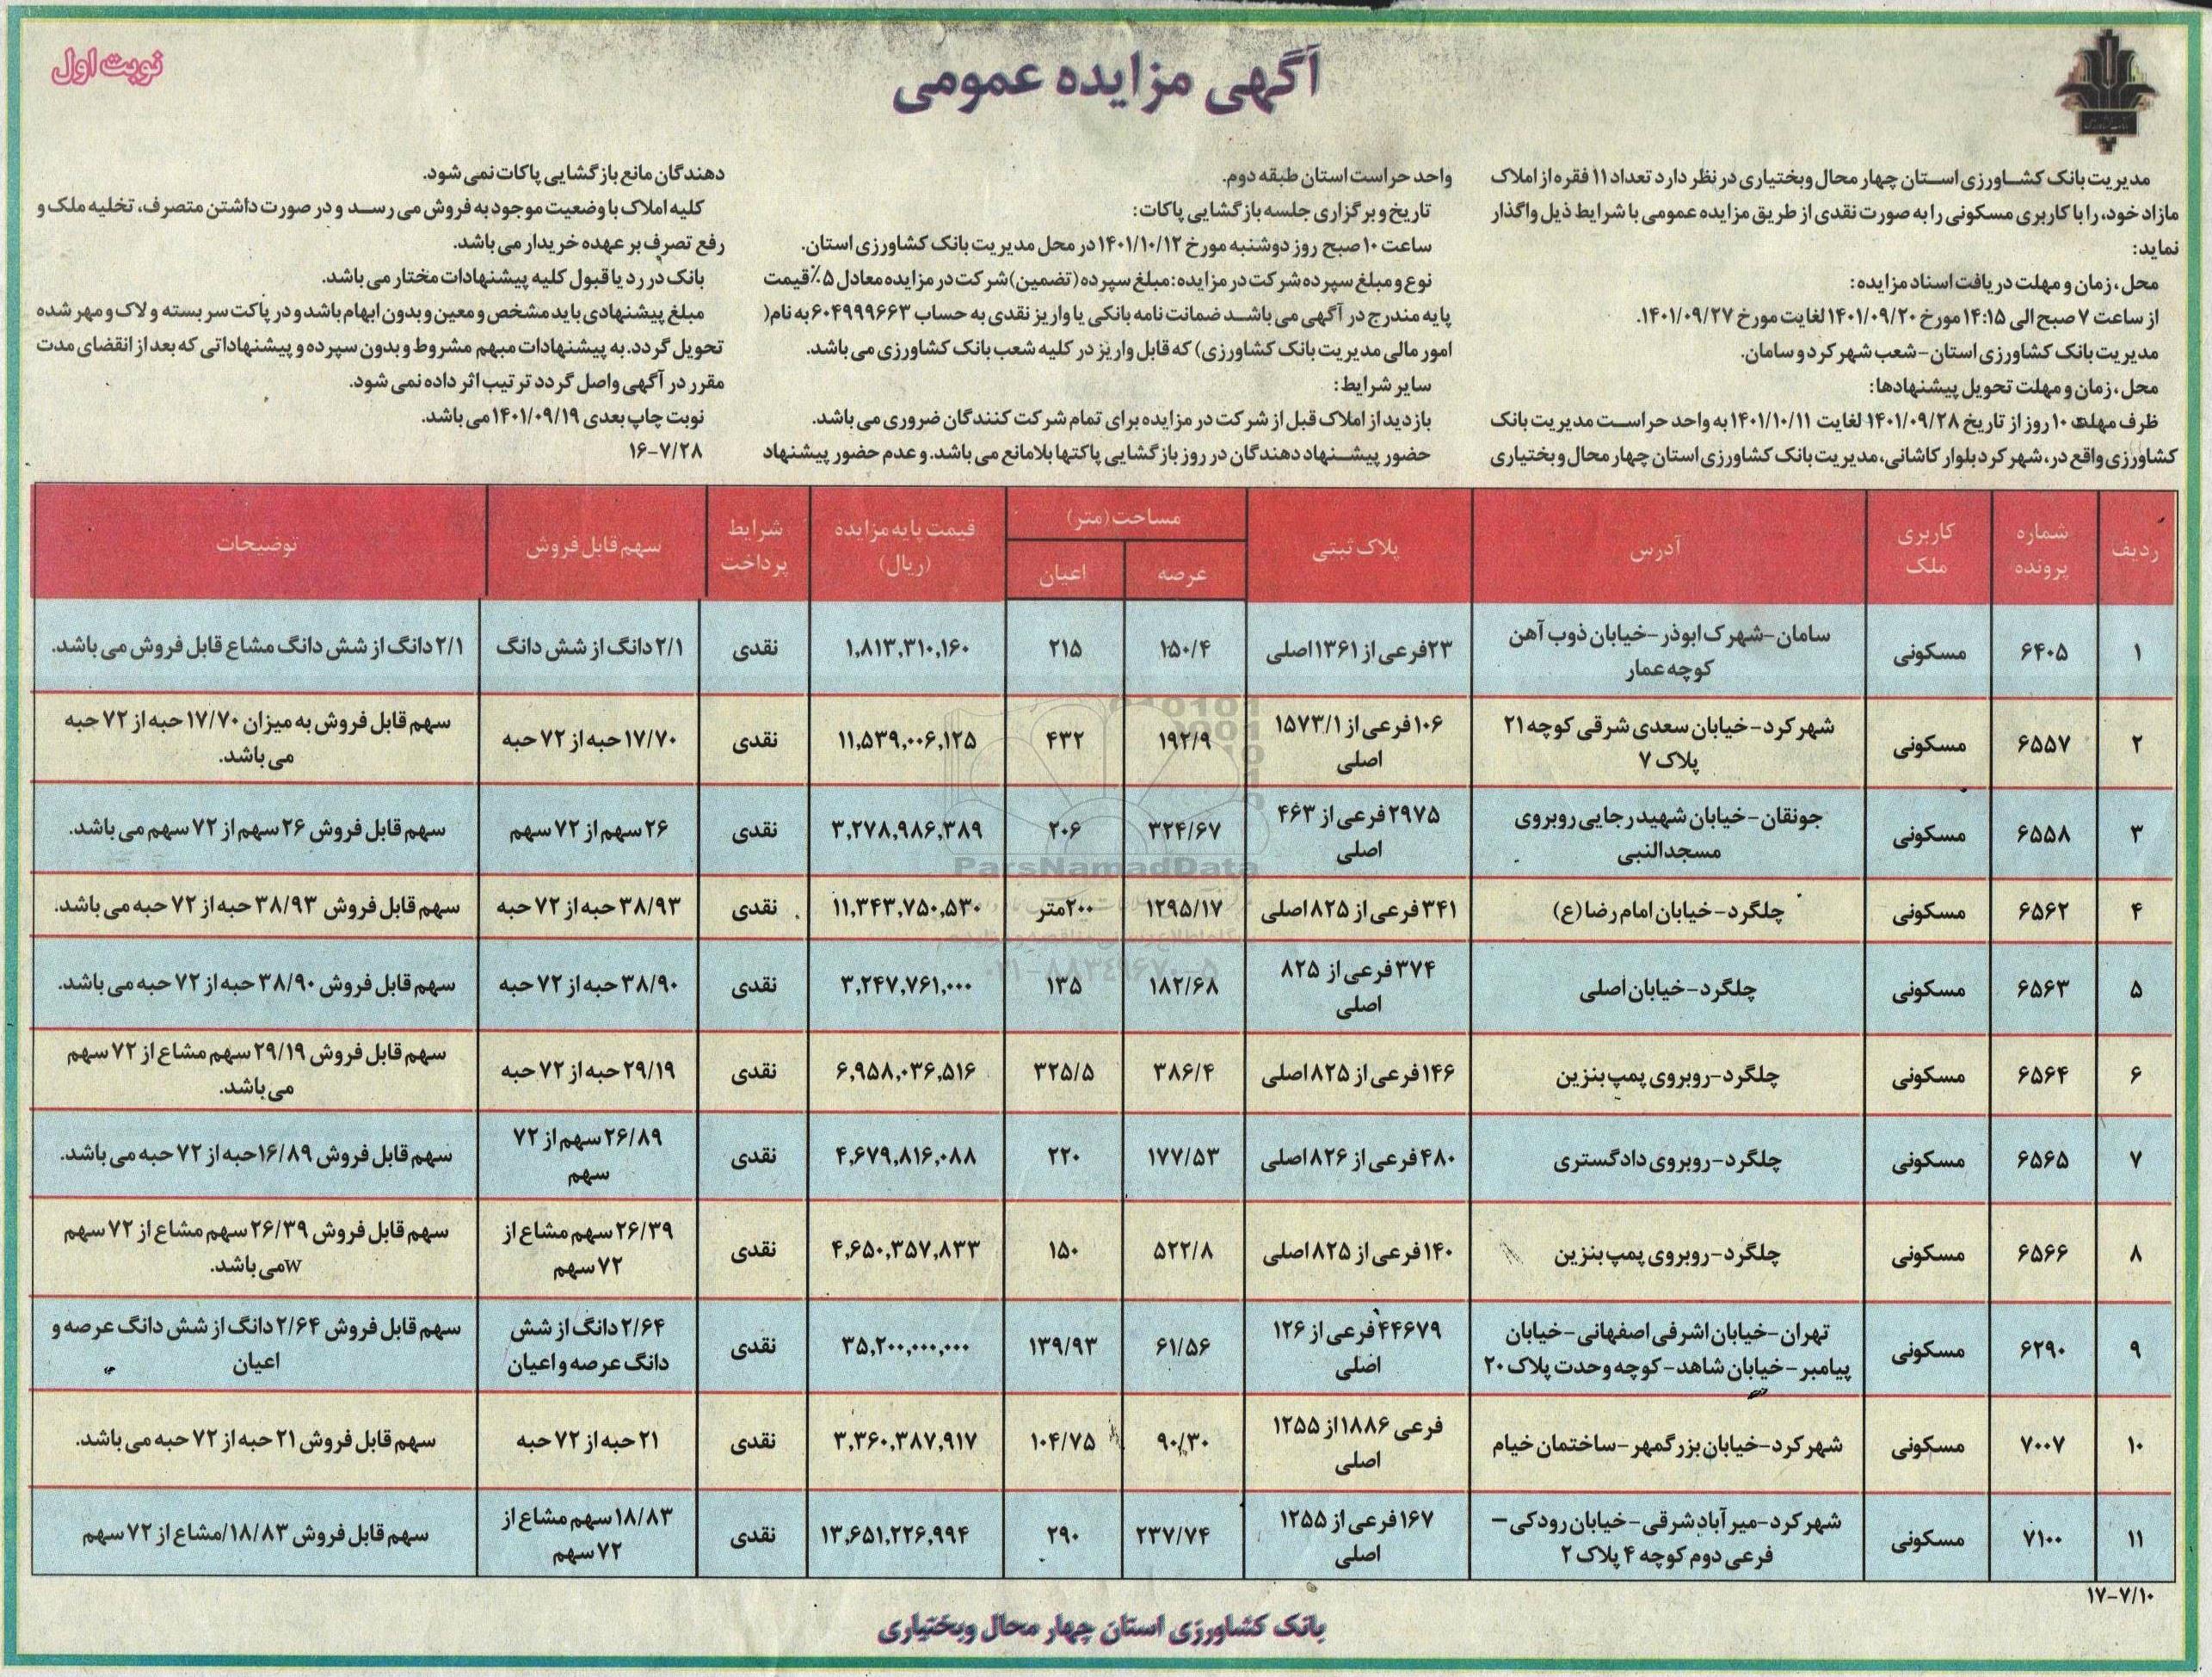 آگهی مزایده عمومی
نوبت اول
مدیریت بانک کشاورزی استان چهار محال وبختیاری در نظر دارد تعداد ۱۱ فقره از املاک
مازاد خود، را با کاربری مسکونی را به صورت نقدی از طریق مزایده عمومی با شرایط ذیل واگذار
نماید:
محل، زمان و مهلت دریافت اسناد مزایده:
از ساعت ۷ صبح الی ۱۴:۱۵ مورخ ۱۴۰۱/۰۹/۲۰ لغایت مورخ ۱۴۰۱/۰۹/۲۷.
مدیریت بانک کشاورزی استان - شعب شهر کرد و سامان.
محل، زمان و مهلت تحویل پیشنهادها:
ظرف مهلت ۱۰ روز از تاریخ ۱۴۰۱/۰۹/۲۸ لغایت ۱۴۰۱/۱۰/۱۱ به واحد حراست مدیریت بانک
کشاورزی واقع در، شهر کرد بلوار کاشانی، مدیریت بانک کشاورزی استان چهار محال وبختیاری
واحد حراست استان طبقه دوم.
تاریخ و برگزاری جلسه بازگشایی پاکات:
ساعت ۱۰ صبح روز دوشنبه مورخ ۱۴۰۱/۱۰/۱۲ در محل مدیریت بانک کشاورزی استان.
نوع و مبلغ سپرده شرکت در مزایده: مبلغ سپرده (تضمین) شرکت در مزایده معادل ۵٪ قیمت
پایه مندرج در آگهی می باشد ضمانت نامه بانکی یا واریز نقدی به حساب ۶۰۴۹۹۹۶۶۳ به نام(
امور مالی مدیریت بانک کشاورزی) که قابل واریز در کلیه شعب بانک کشاورزی می باشد.
سایر شرایط:
بازدید از املاک قبل از شرکت در مزایده برای تمام شرکت کنندگان ضروری می باشد.
حضور پیشنهاد دهندگان در روز بازگشایی پاکتها بلامانع می باشد. و عدم حضور پیشنهاد
دهندگان مانع بازگشایی پاکات نمی شود.
کلیه املاک با وضعیت موجود به فروش می رسد و در صورت داشتن متصرف، تخلیه ملک و
رفع تصرف بر عهده خریدار می باشد.
بانک در رد یا قبول کلیه پیشنهادات مختار می باشد.
مبلغ پیشنهادی باید مشخص و معین و بدون ابهام باشد و در پاکت سر بسته و لاک و مهر شده
تحویل گردد. به پیشنهادات مبهم مشروط و بدون سپرده و پیشنهاداتی که بعد از انقضای مدت
مقرر در آگهی واصل گردد ترتیب اثر داده نمی شود.
نوبت چاپ بعدی ۱۴۰۱/۰۹/۱۹ می باشد.
۱۶-۷/۲۸
ردیف | شماره پرونده | کاربری ملک | آدرس | پلاک ثبتی | مساحت (متر) عرصه | اعیان | قیمت پایه مزایده (ریال) | شرایط پرداخت | سهم قابل فروش | توضیحات
۱ | ۶۴۰۵ | مسکونی | سامان-شهرک ابوذر-خیابان ذوب آهن کوچه عمار | ۲۳ فرعی از ۱۳۶۱ اصلی | ۱۵۰/۴ | ۲۱۵ | ۱,۸۱۳,۳۱۰,۱۶۰ | نقدی | ۲/۱ دانگ از شش دانگ | ۲/۱ دانگ از شش دانگ مشاع قابل فروش می باشد.
۲ | ۶۵۵۷ | مسکونی | شهرکرد-خیابان سعدی شرقی کوچه ۲۱ پلاک ۷ | ۱۰۶ فرعی از ۱۵۷۳/۱ اصلی | ۱۹۲/۹ | ۴۳۲ | ۱۱,۵۳۹,۰۰۶,۱۲۵ | نقدی | ۱۷/۷۰ حبه از ۷۲ حبه | سهم قابل فروش به میزان ۱۷/۷۰ حبه از ۷۲ حبه می باشد.
۳ | ۶۵۵۸ | مسکونی | جونقان-خیابان شهید رجایی روبروی مسجدالنبی | ۲۹۷۵ فرعی از ۴۶۳ اصلی | ۳۲۴/۶۷ | ۲۰۶ | ۳,۲۷۸,۹۸۶,۳۸۹ | نقدی | ۲۶ سهم از ۷۲ سهم | سهم قابل فروش ۲۶ سهم از ۷۲ سهم می باشد.
۴ | ۶۵۶۲ | مسکونی | چلگرد-خیابان امام رضا (ع) | ۳۴۱ فرعی از ۸۲۵ اصلی | ۱۲۹۵/۱۷ | ۲۰۰ متر | ۱۱,۳۴۳,۷۵۰,۵۳۰ | نقدی | ۳۸/۹۳ حبه از ۷۲ حبه | سهم قابل فروش ۳۸/۹۳ حبه از ۷۲ حبه می باشد.
۵ | ۶۵۶۳ | مسکونی | چلگرد-خیابان اصلی | ۳۷۴ فرعی از ۸۲۵ اصلی | ۱۸۲/۶۸ | ۱۳۵ | ۳,۲۴۷,۷۶۱,۰۰۰ | نقدی | ۳۸/۹۰ حبه از ۷۲ حبه | سهم قابل فروش ۳۸/۹۰ حبه از ۷۲ حبه می باشد.
۶ | ۶۵۶۴ | مسکونی | چلگرد-روبروی پمپ بنزین | ۱۴۶ فرعی از ۸۲۵ اصلی | ۳۸۶/۴ | ۳۲۵/۵ | ۶,۹۵۸,۰۳۶,۵۱۶ | نقدی | ۲۹/۱۹ حبه از ۷۲ حبه | سهم قابل فروش ۲۹/۱۹ سهم مشاع از ۷۲ سهم می باشد.
۷ | ۶۵۶۵ | مسکونی | چلگرد-روبروی دادگستری | ۴۸۰ فرعی از ۸۲۶ اصلی | ۱۷۷/۵۳ | ۲۲۰ | ۴,۶۷۹,۸۱۶,۰۸۸ | نقدی | ۲۶/۸۹ سهم از ۷۲ سهم | سهم قابل فروش ۱۶/۸۹ حبه از ۷۲ حبه می باشد.
۸ | ۶۵۶۶ | مسکونی | چلگرد-روبروی پمپ بنزین | ۱۴۰ فرعی از ۸۲۵ اصلی | ۵۲۲/۸ | ۱۵۰ | ۴,۶۵۰,۳۵۷,۸۳۳ | نقدی | ۲۶/۳۹ سهم مشاع از ۷۲ سهم | سهم قابل فروش ۲۶/۳۹ سهم مشاع از ۷۲ سهم wمی باشد.
۹ | ۶۲۹۰ | مسکونی | تهران-خیابان اشرفی اصفهانی-خیابان پیامبر-خیابان شاهد-کوچه وحدت پلاک ۲۰ | ۴۴۶۷۹ فرعی از ۱۲۶ اصلی | ۶۱/۵۶ | ۱۳۹/۹۳ | ۳۵,۲۰۰,۰۰۰,۰۰۰ | نقدی | ۲/۶۴ دانگ از شش دانگ عرصه و اعیان | سهم قابل فروش ۲/۶۴ دانگ از شش دانگ عرصه و اعیان
۱۰ | ۷۰۰۷ | مسکونی | شهرکرد-خیابان بزرگمهر-ساختمان خیام | فرعی ۱۸۸۶ از ۱۲۵۵ اصلی | ۹۰/۳۰ | ۱۰۴/۷۵ | ۳,۳۶۰,۳۸۷,۹۱۷ | نقدی | ۲۱ حبه از ۷۲ حبه | سهم قابل فروش ۲۱ حبه از ۷۲ حبه می باشد.
۱۱ | ۷۱۰۰ | مسکونی | شهرکرد-میرآباد شرقی-خیابان رودکی-فرعی دوم کوچه ۴ پلاک ۲ | ۱۶۷ فرعی از ۱۲۵۵ اصلی | ۲۳۷/۷۴ | ۲۹۰ | ۱۳,۶۵۱,۲۲۶,۹۹۴ | نقدی | ۱۸/۸۳ سهم مشاع از ۷۲ سهم | سهم قابل فروش ۱۸/۸۳/مشاع از ۷۲ سهم
۱۷-۷/۱۰
بانک کشاورزی استان چهار محال وبختیاری
ParsNamadData